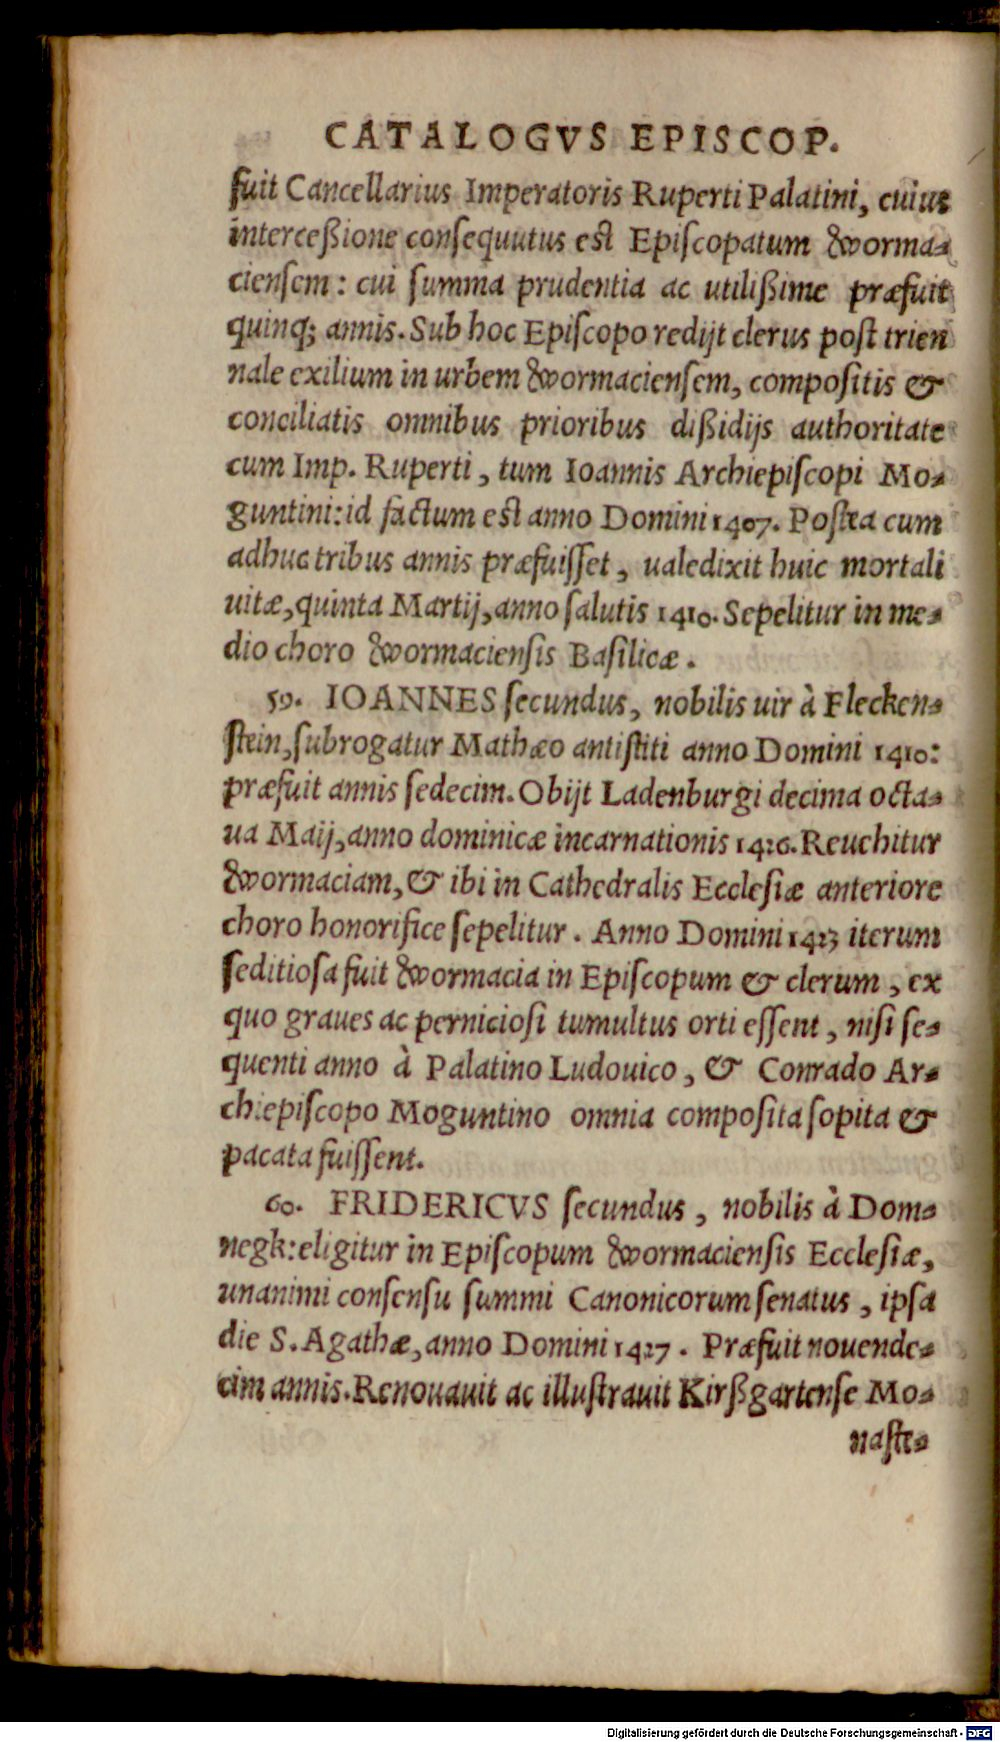 CATALOGVS EPISCOP.
fuit Cancellarius Imperatoris Ruperti Palatini, cuius
interceßione consequutus est Episcopatum Worma-
ciensem: cui summa prudentia ac utilißime præfuit
quinq; annis. Sub hoc Episcopo redijt clerus post trien
nale exilium in urbem Wormaciensem, compositis &
conciliatis omnibus prioribus dißidijs authoritate
cum Imp. Ruperti, tum Ioannis Archiepiscopi Mo-
guntini: id factum est anno Domini 1407. Postea cum
adhuc tribus annis præfuisset, ualedixit huic mortali
uitæ, quinta Martij, anno salutis 1410. Sepelitur in me-
dio choro Wormaciensis Basilicæ.
59. IOANNES secundus, nobilis uir à Flecken-
stein, subrogatur Mathæo antistiti anno Domini 1410:
præfuit annis sedecim. Obijt Ladenburgi decima octa-
ua Maij, anno dominicæ incarnationis 1426. Reuehitur
Wormaciam, & ibi in Cathedralis Ecclesiæ anteriore
choro honorifice sepelitur. Anno Domini 1423 iterum
seditiosa fuit Wormacia in Episcopum & clerum, ex
quo graues ac perniciosi tumultus orti essent, nisi se-
quenti anno à Palatino Ludouico, & Conrado Ar-
chiepiscopo Moguntino omnia composita sopita &
pacata fuissent.
60. FRIDERICVS secundus, nobilis à Dom-
negk: eligitur in Episcopum Wormaciensis Ecclesiæ,
unanimi consensu summi Canonicorum senatus, ipsa
die S. Agathæ, anno Domini 1427. Præfuit nouende-
cim annis. Renouauit ac illustrauit Kirßgartense Mo-
naste-
Digitalisierung gefördert durch die Deutsche Forschungsgemeinschaft - DFG